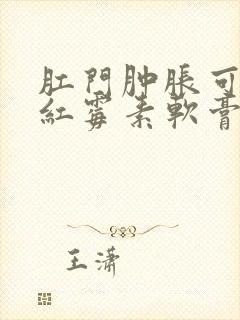 肛門肿脹可
紅霉素軟膏
王潇